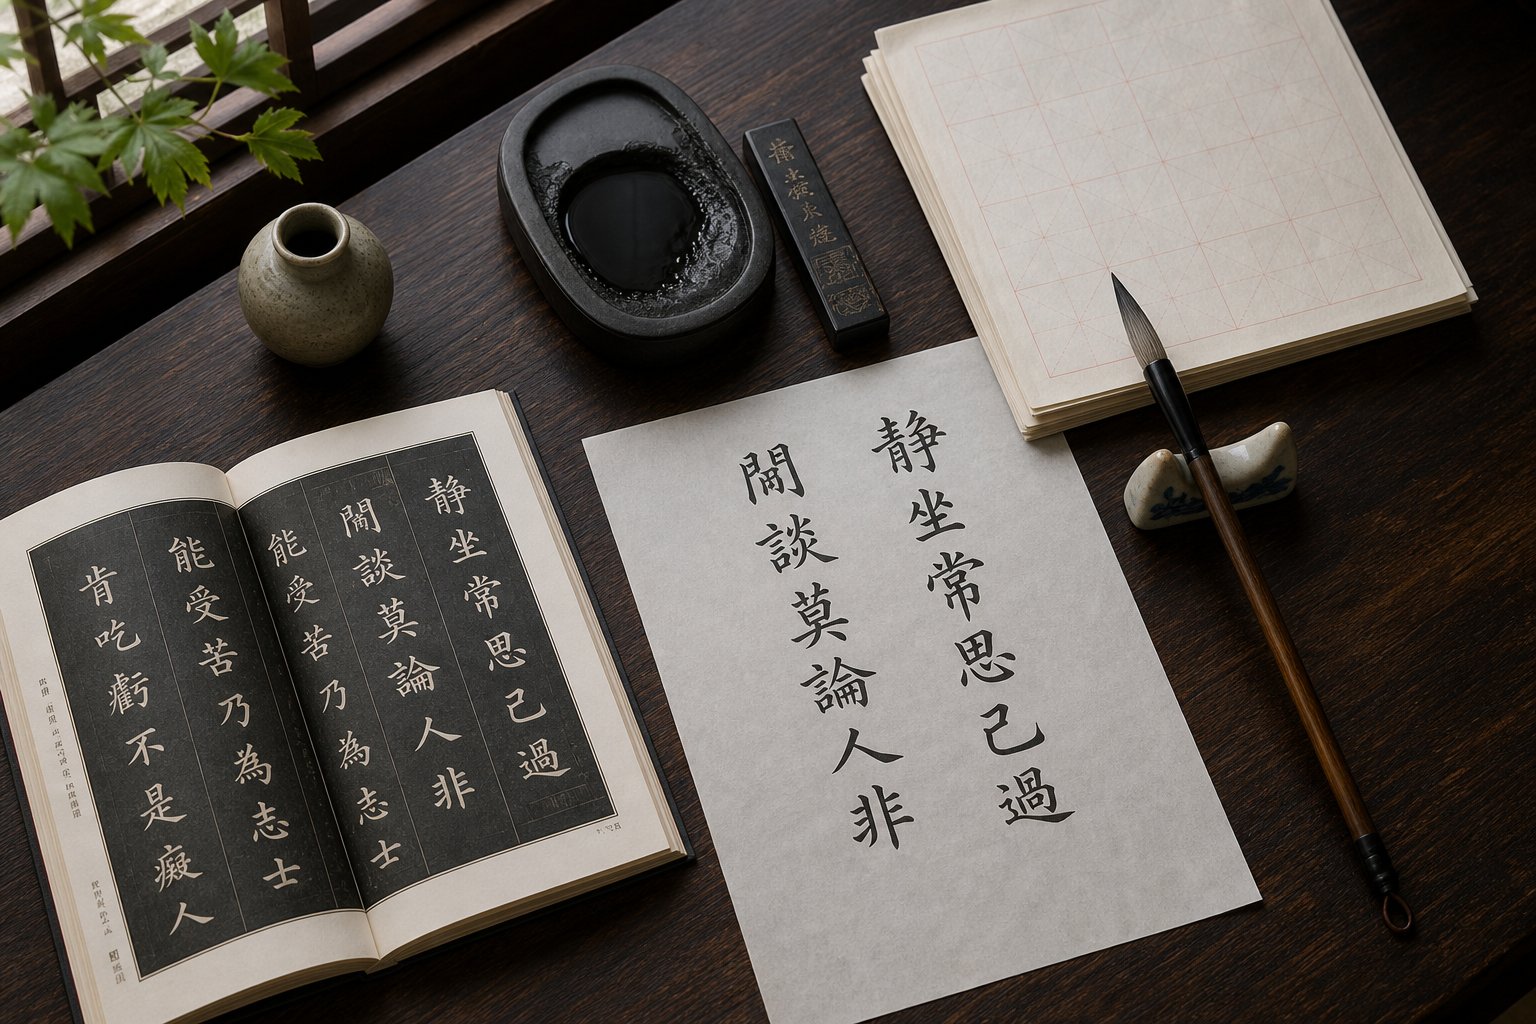 静坐常思己過
閒談莫論人非
能受苦乃為志士
能受苦乃為志士
肯吃虧不是癡人
静坐常思己過
閒談莫論人非